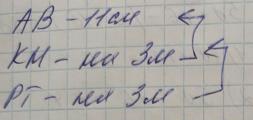 АВ - 11 см
КМ - на 3 м
РТ - на 3 м